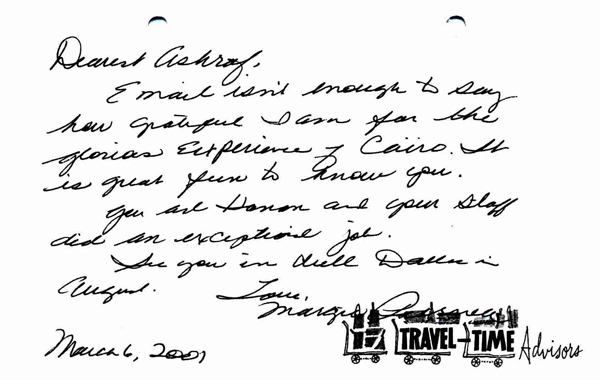 Dearest Ashraf,
Email isn't enough to say
how grateful I am for the
glorias Experience of Cairo. It
is great fun to know you.
You and Hanan and your staff
did an exceptional job.
See you in Dallas in
August. Love,
Margie
TRAVEL-TIME Advisors
March 6, 2001